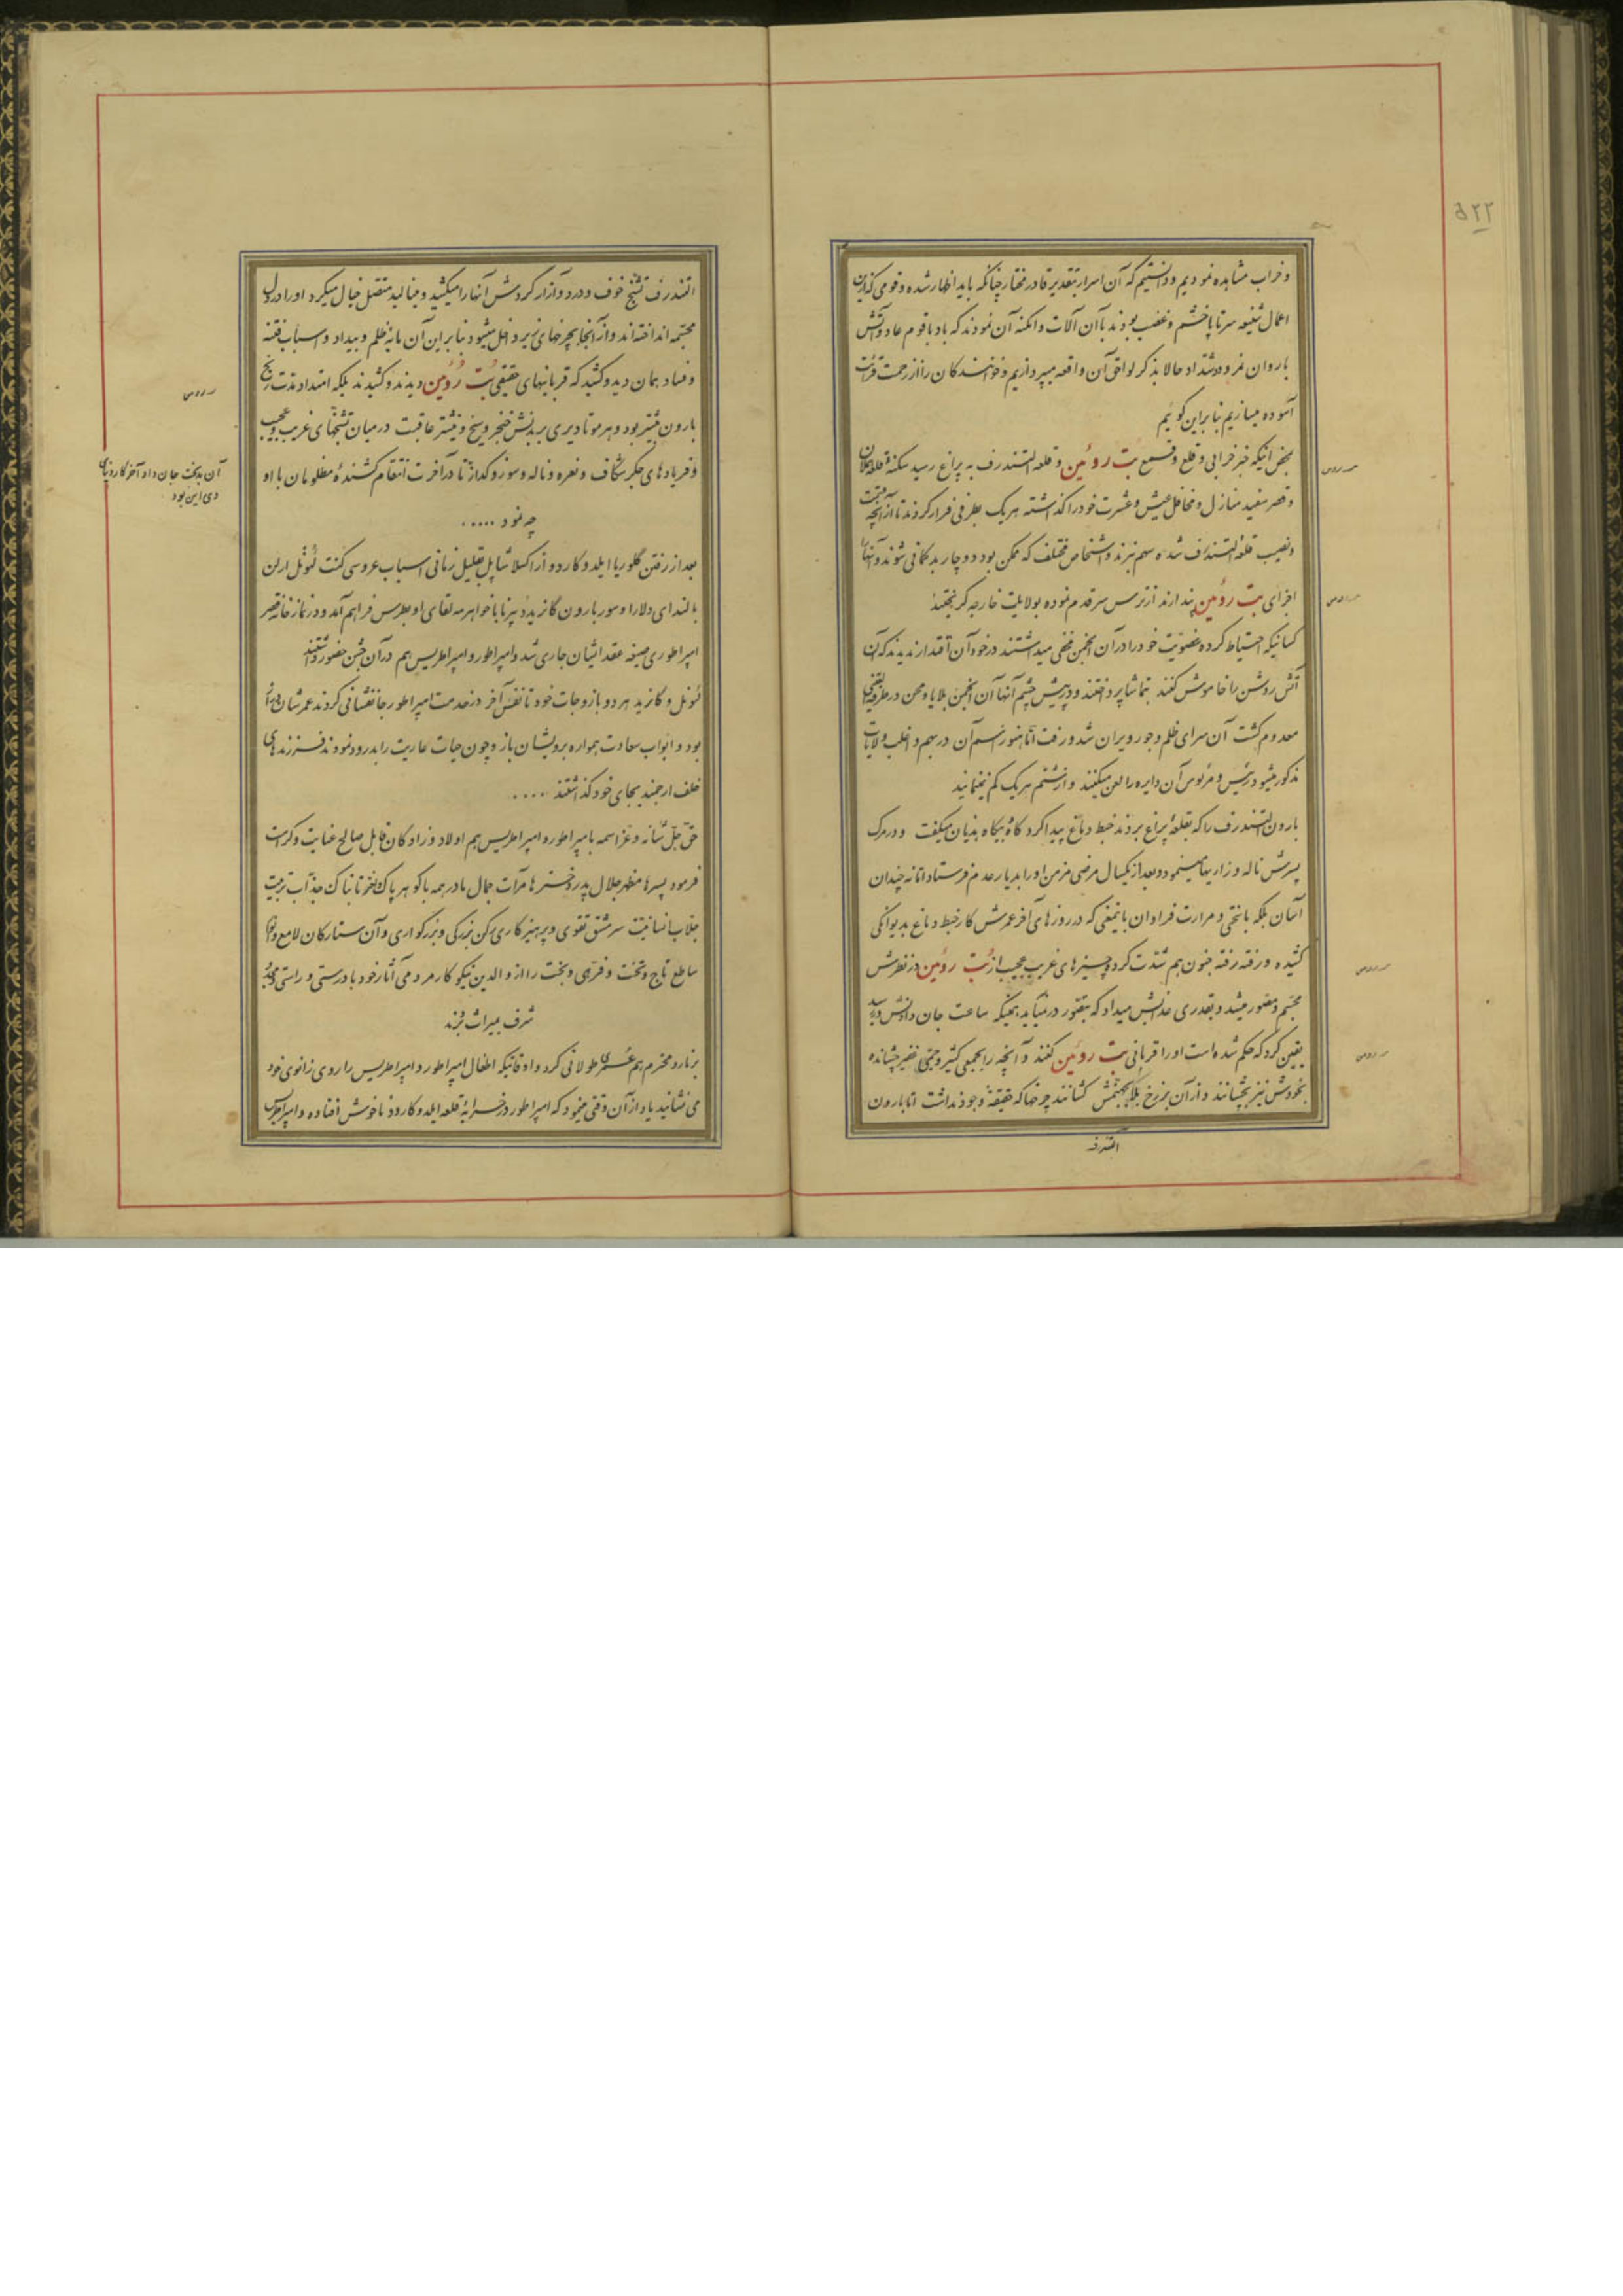 ۵۲۲
و خراب مشاهده نمودیم و دانستیم که آن اسرار بتقدیر قادر مختار چنانکه باید اظهار شده و قومی که از این
اعمال شنیعه سرتاپا خشم و غضب بودند با آن آلات و امکنه آن نمودند که باد با قوم عاد و آتش
با روان نمرود و شداد حالا بذکر لواحق آن واقعه میپردازیم و خوانندکان را از زحمت قرائت
آسوده میسازیم بنابراین کوئیم
بمحض اینکه خبر خرابی و قلع و قمع بت روئین و قلعه التندرف به پراغ رسید سکنهٔ قلعه
و قصر سفید منازل و محافل عیش و عشرت خود را کذاشته هریک بطرفی فرار کردند تا از آنچه قسمت
و نصیب قلعهٔ التندرف شده سهم نبرند و اشخاص مختلف که ممکن بود دوچار بدکمانی شوند و آنها را
اجزای بت روئین پندارند از ترس سرقدم نموده بولایات خارجه کریختند
کسانیکه احتیاط کرده عضویت خود را در آن انجمن مخفی میداشتند در خود آن اقتدار ندیدند که آن
آتش روشن را خاموش کنند بتماشا پرداختند و در پیش چشم آنها آن انجمن بلایا و محن در طرفة العینی
معدوم کشت آن سرای ظلم و جور ویران شد و رفت اما هنوز اسم آن در بهم و اغلب ولایات
مذکور میشود رئیس و مرئوس آن دایره را لعن میکنند و از شتم هریک کم نمینمایند
بارون التندرف را که بقلعهٔ پراغ بردند خبط دماغ پیدا کرد کاه بیکاه هذیان میکفت و در مرک
پسرش ناله و زاریها مینمود و بعد از یکسال مرضی مزمن او را بدیار عدم فرستاد اما نه چندان
آسان بلکه با سختی و مرارت فراوان باینمعنی که در روزهای آخر عمرش کار خبط دماغ بدیوانکی
کشیده و رفته رفته جنون هم شدت کرده چیزهای غریب عجیب از بت روئین در نظرش
مجسم و مصور میشد و بقدری عذابش میداد که بتصور درنیاید همینکه ساعت جان دادنش در رسید
یقین کرد که حکم شده است او را قربانی بت روئین کنند و آنچه را بجمعی کثیر و جمی غفیر چشانده
بخودش نیز بچشانند و از آن برزخ بلکه بجهنمش کشانند چرخها که حقیقة وجود نداشت اما بارون
التندرف
التندرف تشنج خوف و درد و آزار کردش آنها را میکشید و مینالید متصل خیال میکرد او را در دل
مجسمه انداخته‌اند و از آنجا بچرخهای زیر داخل میشود بنابراین آن مایهٔ ظلم و بیداد و اسباب فتنه
و فساد همان دید و کشید که قربانیهای حقیقی بت روئین دیدند و کشیدند بلکه امتداد مدت رنج
بارون بیشتر بود و هر مو تا دیری بر بدنش خنجر و سیخ و نیشتر عاقبت در میان تشنجهای غریب و عجیب
و فریادهای جکر شکاف و نعره و ناله و سوز و کداز تا در آخرت انتقام کشندهٔ مظلومان با او
آن بدبخت جان داد آخر کار دنیای
وی این بود
چه نمود . . . . .
بعد از رفتن کلوریا ایلدوکاردو از اکسلا شاپل بقلیل زمانی اسباب عروسی کنت لئونل ارلن
با لندای دلارا و سور بارون کازیدر نیز با خواهر مه لقای او بطرس فراهم آمد و در نمازخانه قصر
امپراطوری صیغه عقد ایشان جاری شد و امپراطور و امپراطریس هم در آن جشن حضور داشتند
لئونل و کازید هر دو با زوجات خود تا نفس آخر در خدمت امپراطور جانفشانی کردند عمرشان دراز
بود و ابواب سعادت همواره برویشان باز و چون حیات عاریت را بدرود نمودند فرزندهای
خلف ارجمند بجای خود کذاشتند . . . .
حق جل شانه و عز اسمه بامپراطور و امپراطریس هم اولاد و زادکان قابل صالح عنایت و کرامت
فرمود پسرها مظهر جلال پدر دخترها مرآت جمال مادر همه با کوهر پاک اختر تابناک جذاب تربیت
جلاب انسانیت سرمشق تقوی و پرهیزکاری رکن بزرکی و بزرکواری و آن ستارکان لامع و انوار
ساطع تاج و تخت و فرهی و بخت را از والدین نیکوکار مردمی آثار خود با درستی و راستی و مجد و
شرف بمیراث بردند
برنارد محترم هم عمری طولانی کرد و اوقاتیکه اطفال امپراطور و امپراطریس را روی زانوی خود
می نشانید یاد از آن وقتی مینمود که امپراطور در خرابهٔ قلعه ایلدوکاردو ناخوش افتاده و امپراطریس